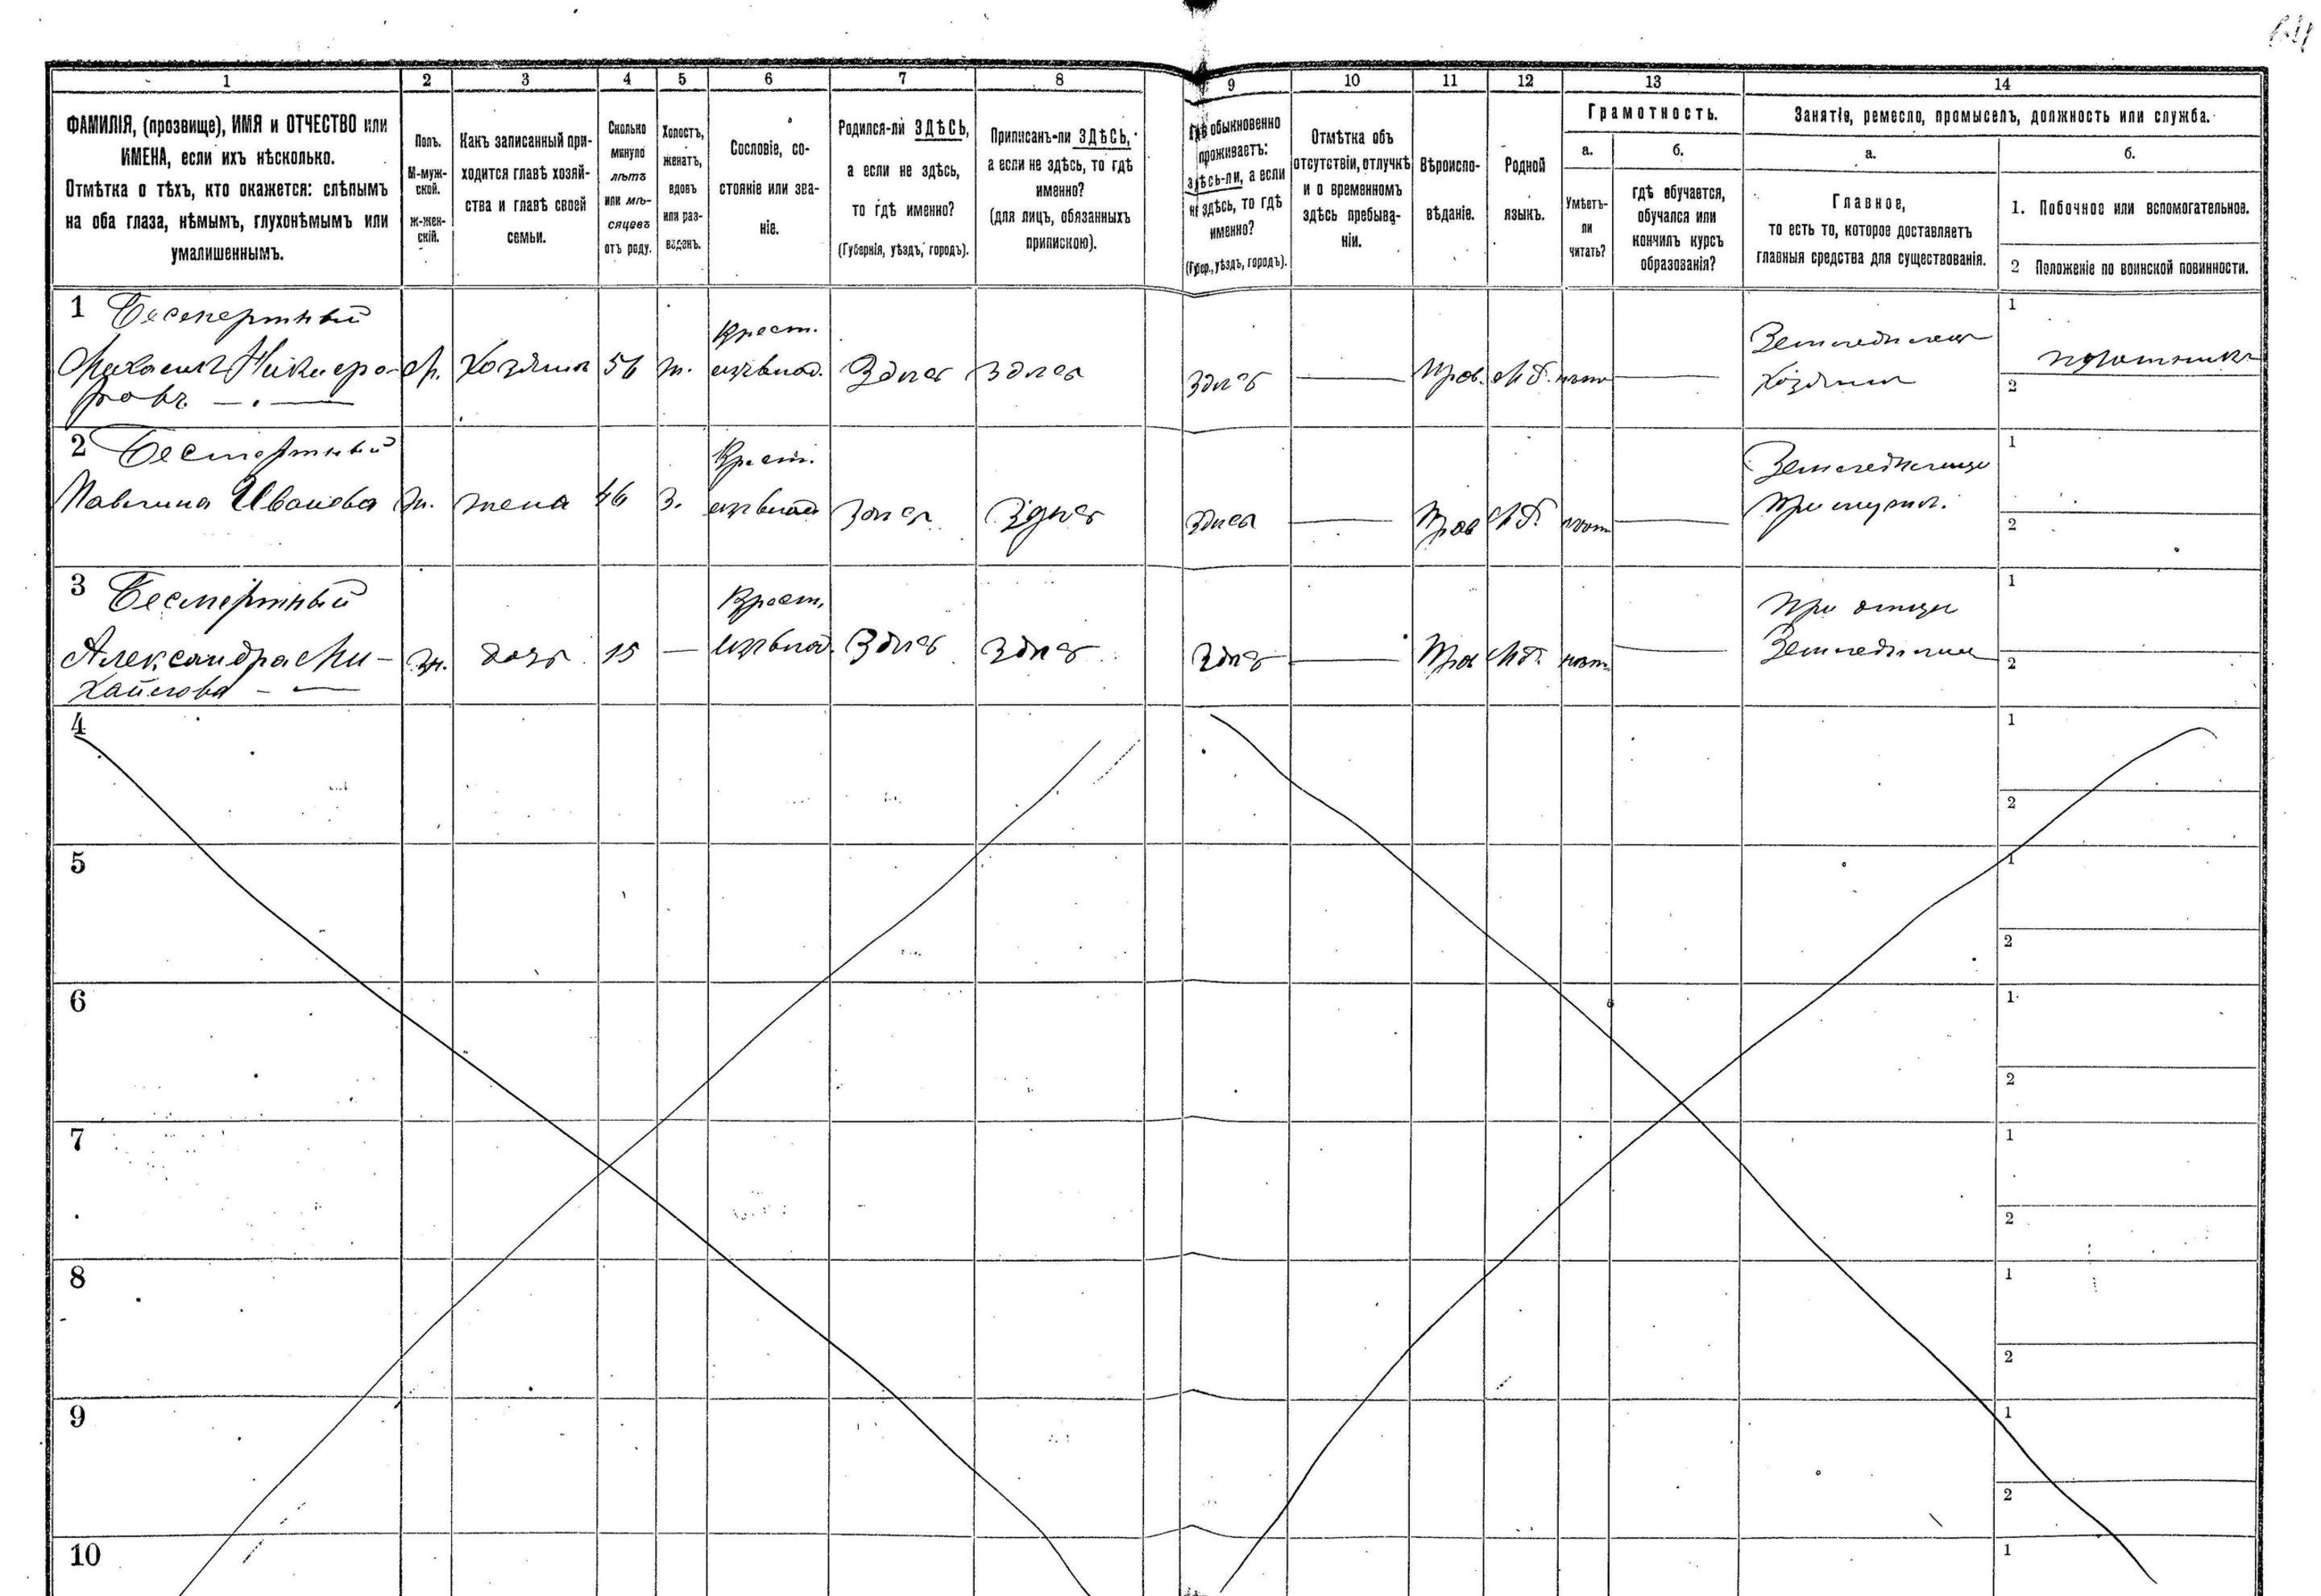 1 2 3 4 5 6 7 8 9 10 11 12 13 14
ФАМИЛІЯ, (прозвище), ИМЯ и ОТЧЕСТВО или
ИМЕНА, если ихъ нѣсколько.
Отмѣтка о тѣхъ, кто окажется: слѣпымъ
на оба глаза, нѣмымъ, глухонѣмымъ или
умалишеннымъ.
Полъ.
М-муж-
ской.
ж-жен-
скій.
Какъ записанный при-
ходится главѣ хозяй-
ства и главѣ своей
семьи.
Сколько
минуло
лѣтъ
или мѣ-
сяцевъ
отъ роду.
Холостъ,
женатъ,
вдовъ
или раз-
веденъ.
Сословіе, со-
стояніе или зва-
ніе.
Родился-ли ЗДѢСЬ,
а если не здѣсь,
то гдѣ именно?
(Губернія, уѣздъ, городъ).
Приписанъ-ли ЗДѢСЬ,
а если не здѣсь, то гдѣ
именно?
(для лицъ, обязанныхъ
припискою).
Гдѣ обыкновенно
проживаетъ:
здѣсь-ли, а если
не здѣсь, то гдѣ
именно?
(Губер., уѣздъ, городъ).
Отмѣтка объ
отсутствіи, отлучкѣ
и о временномъ
здѣсь пребыва-
ніи.
Вѣроиспо-
вѣданіе.
Родной
языкъ.
Грамотность.
а.
Умѣетъ-
ли
читать?
б.
гдѣ обучается,
обучался или
кончилъ курсъ
образованія?
Занятіе, ремесло, промыселъ, должность или служба.
а.
Главное,
то есть то, которое доставляетъ
главныя средства для существованія.
б.
1. Побочное или вспомогательное.
2 Положеніе по воинской повинности.
1 Бесмертный
Михаилъ Никифо-
ровъ
М. Хозяинъ 56 ж.
Крест.
Здѣсь Здѣсь Здѣсь — Прав. —
Хозяинъ
1
плотникъ
2
2 Бесмертный
Павлина Иванова ж. жена 46 з.
Крест.
Здѣсь Здѣсь Здѣсь — Прав —
1
2
3 Бесмертный
Александра Ми-
хайлова
ж. дочь 15 —
Крест.
Здѣсь Здѣсь Здѣсь — Прав —
При отцѣ
1
2
4 1
2
5 1
2
6 1
2
7 1
2
8 1
2
9 1
2
10 1